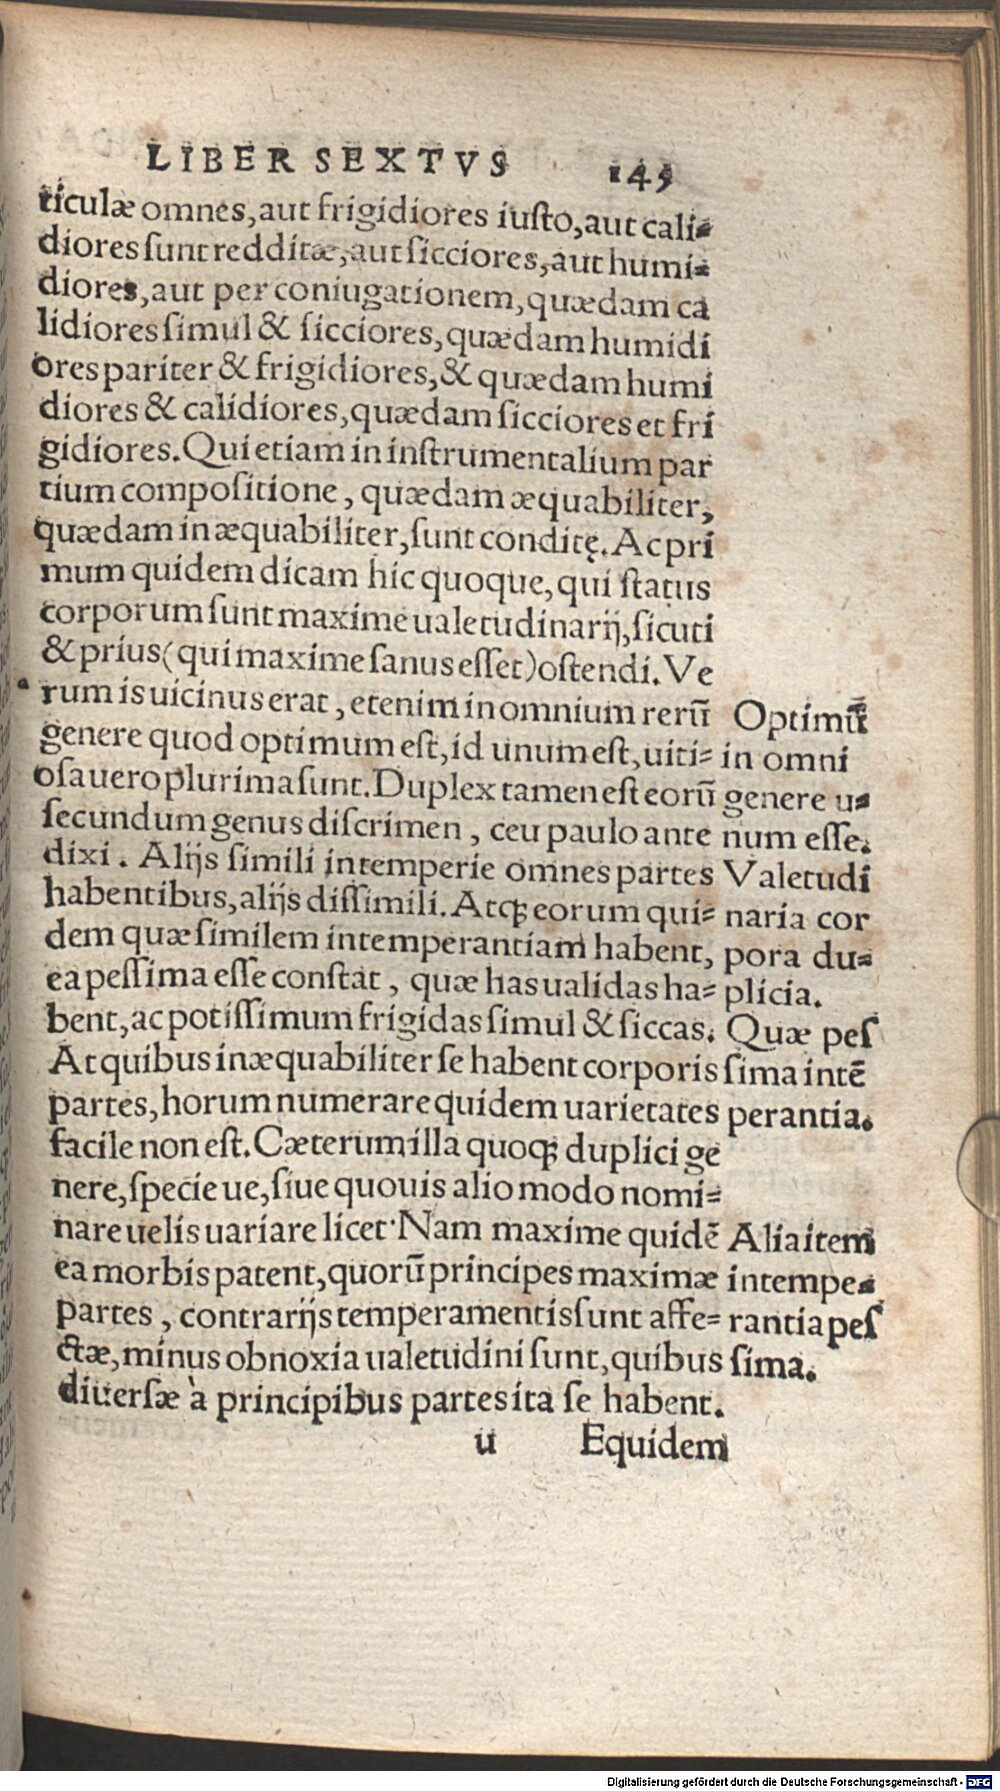 LIBER SEXTVS 145
ticulæ omnes, aut frigidiores iusto, aut cali-
diores sunt redditæ, aut sicciores, aut humi-
diores, aut per coniugationem, quædam ca
lidiores simul & sicciores, quædam humidi
ores pariter & frigidiores, & quædam humi
diores & calidiores, quædam sicciores et fri
gidiores. Qui etiam in instrumentalium par
tium compositione, quædam æquabiliter,
quædam inæquabiliter, sunt conditę. Ac pri
mum quidem dicam hic quoque, qui status
corporum sunt maxime ualetudinarij, sicuti
& prius (qui maxime sanus esset) ostendi. Ve
rum is uicinus erat, etenim in omnium rerū
genere quod optimum est, id unum est, uiti-
osa uero plurima sunt. Duplex tamen est eorū
secundum genus discrimen, ceu paulo ante
dixi. Alijs simili intemperie omnes partes
habentibus, alijs dissimili. Atq; eorum qui-
dem quæ similem intemperantiam habent,
ea pessima esse constat, quæ has ualidas ha-
bent, ac potissimum frigidas simul & siccas.
At quibus inæquabiliter se habent corporis
partes, horum numerare quidem uarietates
facile non est. Cæterum illa quoq; duplici ge
nere, specie ue, siue quouis alio modo nomi-
nare uelis uariare licet. Nam maxime quidē
ea morbis patent, quorū principes maximæ
partes, contrarijs temperamentis sunt affe-
ctæ, minus obnoxia ualetudini sunt, quibus
diuersæ à principibus partes ita se habent.
u Equidem
Optimū
in omni
genere u-
num esse.
Valetudi
naria cor
pora du-
plicia.
Quæ pes
sima intē
perantia.
Alia item
intempe-
rantia pes
sima.
Digitalisierung gefördert durch die Deutsche Forschungsgemeinschaft - DFG